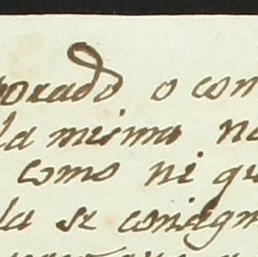 porado o con
la misma no
como ni qu
la se consign